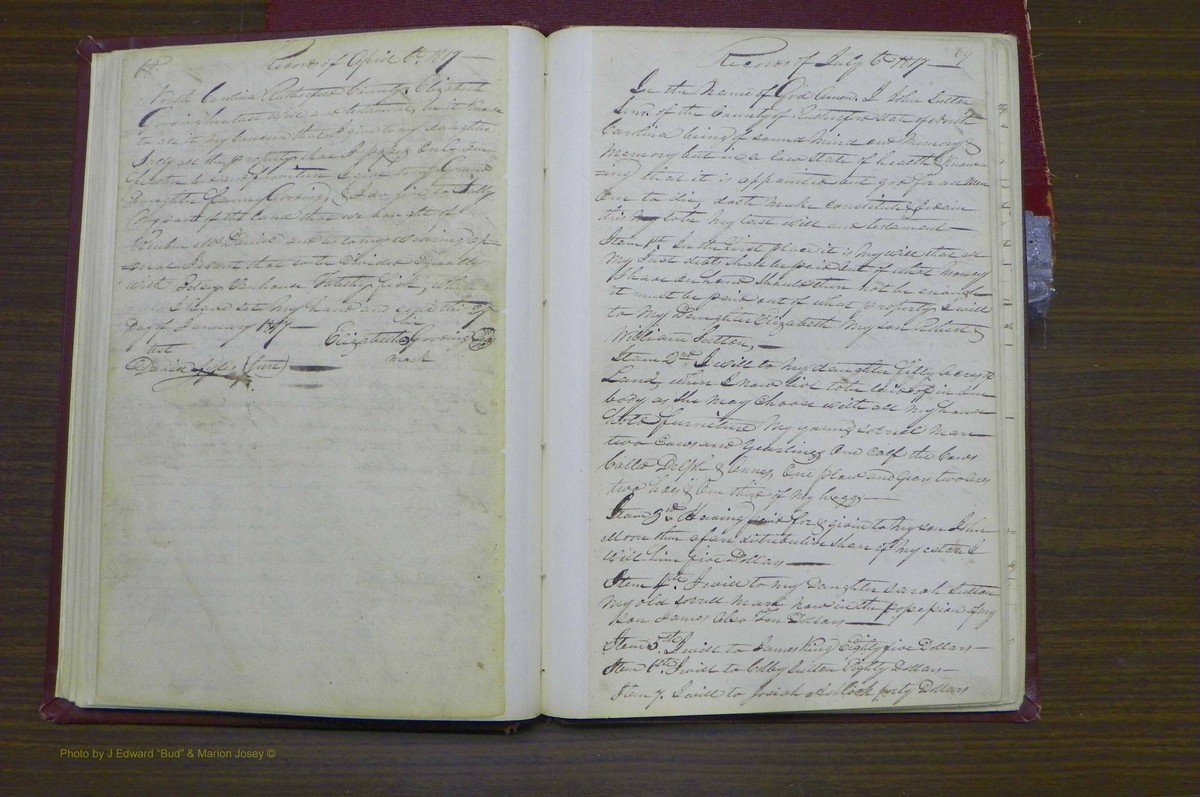 68
Record of April 6th 1817
North Carolina Rutherford County, Elizabeth
Gooing last will and testament, be it known
to all it may concern that I give to my daughter
Sally all the property that I possess only one
of household furniture I give to my Grand
Daughter Fanny Gooing & I do give to Sally
My part of the land that we bought of
Reuben McDaniel and as to my wearing ap-
=parel I want that to be divided Equally
With
I have set my hand and seal this 27
Day of January 1817
her
test Elizabeth Gooing
mark
David (Jurt)
69
Record of July 6th 1817
In the Name of God Amen. I John Sutton
Senr of the County of Rutherford state of North
Carolina being of sound mind and memory &
Memory but in a low state of health & know-
=ing that it is appointed but god for all Men
Once to die, doth make constitute & ordain
this my my last will and testament
Item 1st In the first place it is My will that all
My Just debts shall be paid out of what money
I have on hand should there not be enough
it must be paid out of what property I will
to My Daughter Elizabeth My son Robert &
William Sutton
Item 2nd I will to my daughter
Land where I now live to be laid off in one
body as she may choose with all my house
hold furniture My young sorrell Mare
two Cows and yearlings One calf the Cows
Called Delph & one plow and gear two axes
two hoes & one third of My hoggs
Item 3rd Having paid for & given to my son John
More than a fair distributive share of My estate I
Will him five Dollars
Item 4th I will to my Daughter Sarah Sutton
My old sorrell mare now in the possession of my
Son James Also Ten Dollars
Item 5th I will to James King Eighty five Dollars
Item 6th I will to Sutton Eighty Dollars
Item 7. I will to Josiah forty Dollars
Photo by J Edward "Bud" & Marion Josey ©